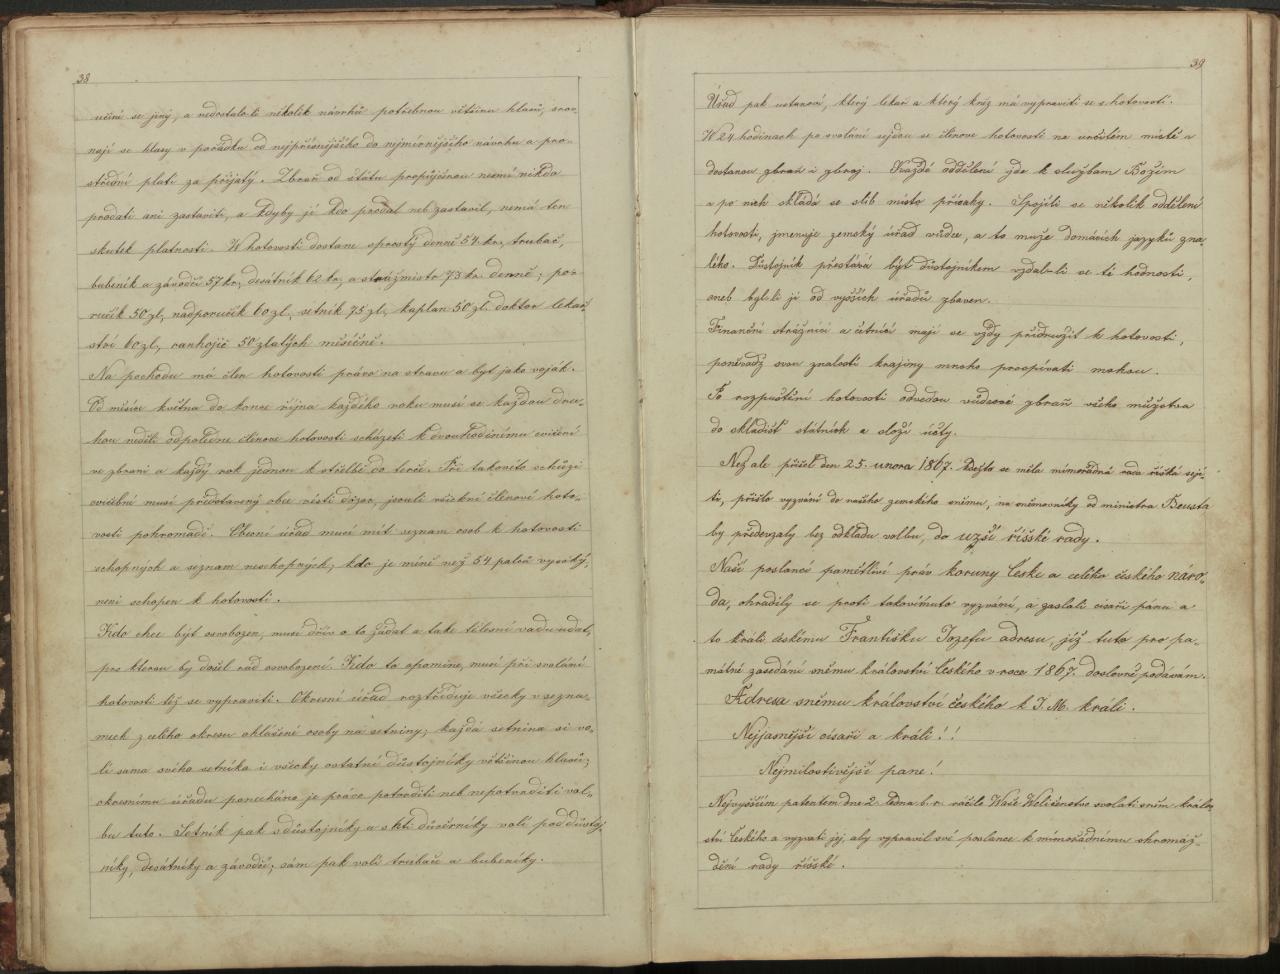 38
učiní se jiný, a nedostalo-li několik návrhů potřebnou většinu hlasů, srov-
nají se hlasy v pořádku od nejpřísnějšího do nejmírnějšího návrhu a pro-
střední platí za přijatý. Zbraň od státu propůjčenou nesmí nikdo
prodati ani zastaviti, a kdyby ji kdo prodal neb zastavil, nemá ten
skutek platnosti. W hotovosti dostane sprostý denně 54 kr, trubač,
bubeník a závodčí 57 kr, desátník 62 kr, a strážmistr 73 kr. denně; po-
ručík 50 zl, nadporučík 60 zl, setník 75 zl, kaplan 50 zl. doktor lekař-
ství 60 zl, ranhojič 50 zlatých měsíčně.
Na pochodu má člen hotovosti právo na stravu a byt jako voják.
Od měsíce května do konce října každého roku musí se každou dru-
hou neděli odpoledne členové hotovosti scházeti k dvouhodinému cvičení
ve zbrani a každý rok jednou k střelbě do terče. Při takovéto schůzi
cvičební musí představený obce vésti dozor, jsouli všickni členové hoto-
vosti pohromadě. Obecní úřad musí mít seznam osob k hotovosti
schopných a seznam neschopných; kdo je méně než 54 palců vysoký,
neni schopen k hotovosti.
Kdo chce být osvobozen, musí dřív o to žádat a take tělesní vadu udat,
pro kterou by došel rád osvobození. Kdo to opomine, musí při svolání
hotovosti též se vypraviti. Okresní úřad roztřiďuje všecky v sezna-
mech z celého okresu ohlášené osoby na setniny; každá setnina si vo-
lí sama svého setníka i všecky ostatní důstojníky většinou hlasů;
okresnímu úřadu ponecháno je právo potvrditi neb nepotvrditi vol-
bu tuto. Setník pak s důstojníky a s důvěrníky volí poddůstoj-
níky, desátníky a závodčí; sám pak volí trubače a bubeníky.
39
Úřad pak ustanoví, který lekař a který kněz má vypraviti se s hotovostí.
W 24 hodinach po svolání sejdou se členove hotovosti na určitém místě a
dostanou zbraň i zbroj. Každé oddělení jde k službam Božím
a po nich skládá se slib místo přísahy. Spojéli se několik oddělení
hotovosti, jmenuje zemský úřad vůdce, a to muže domácích jazyků zna-
lého. Důstojník přestává být důstojníkem vzdal-li se té hodnosti,
aneb byl-li jí od vyšších úřadů zbaven.
Finanční strážníci a četníci mají se vždy přidružit k hotovosti,
poněvadž svou znalostí krajiny mnoho prospívati mohou.
Po rozpuštění hotovosti odvedou vůdcové zbraň všeho mužstva
do skladišť státních a složí účty.
Než ale přišel den 25. unora 1867. kdežto se měla mimořádná rada říšká sejí-
ti, přišlo vyzvání do našeho zemského sněmu, na sněmovníky od ministra Beusta
by předevzaly bez odkladu volbu, do užší říšské rady.
Naši poslanci pamětliví práv koruny České a celého českého náro-
da, ohradily se proti takovímuto vyzvání, a zaslali císaři pánu a
to králi českému Františku Jozefu adresu, již tuto pro pa-
mátné zasedání sněmu království Českého v roce 1867. doslovně podávám.
Adresa sněmu království českého k J. M. králi.
Nejjasnější císaři a králi!!
Nejmilostivější pane!
Nejvyšším patentem dne 2. ledna b. r. račilo Waše Weličenstvo svolati sněm králov-
ství Českého a vyzvati jej, aby vypravil své poslance k mimořádnému shromáž-
dění rady říšské.